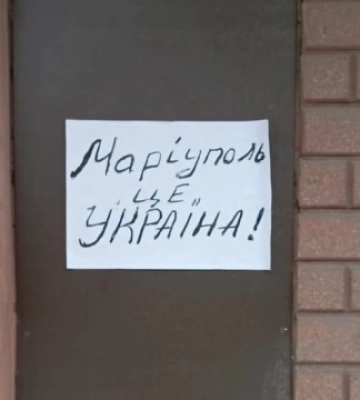 Маріуполь
ЦЕ
УКРАЇНА!